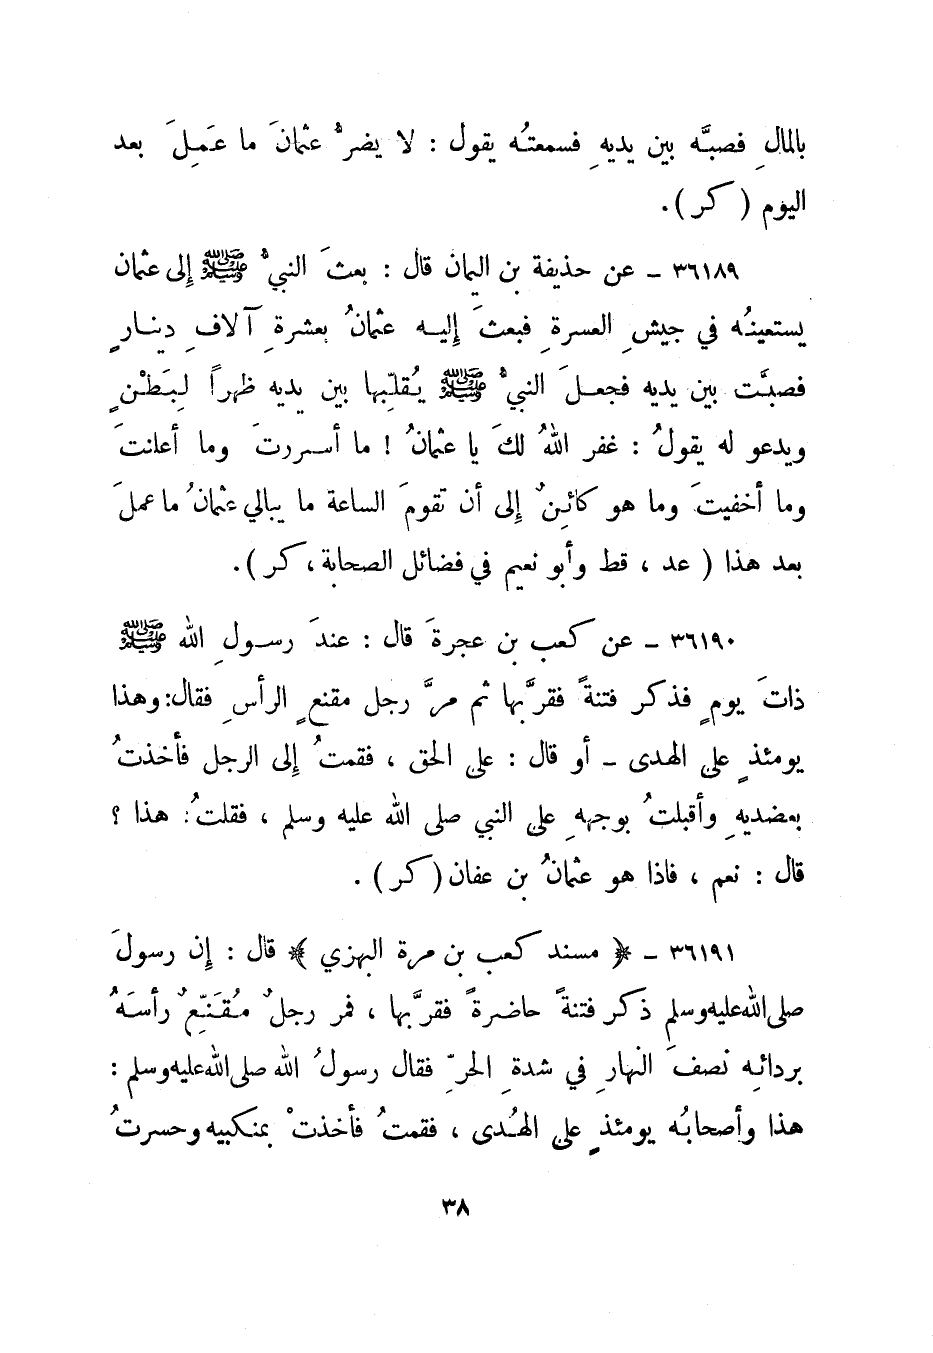 بالمالِ فصبَّه بين يديهِ فسمعتُه يقول : لا يضرُّ عثمانَ ما عَمِلَ بعد
اليوم ( كر ) .
٣٦١٨٩ ــ عن حذيفة بن اليمان قال : بعثَ النبيُّ ﷺ إلى عثمان
يستعينُه في جيشِ العسرةِ فبعثَ إليه عثمانُ بعشرةِ آلافِ دينارٍ
فصبَّت بين يديه فجعلَ النبيُّ ﷺ يُقلّبها بين يديه ظهراً لبَطْنٍ
ويدعو له يقولُ : غفر اللهُ لكَ يا عثمانُ ! ما أسررتَ وما أعلنتَ
وما أخفيتَ وما هو كائنٌ إلى أن تقومَ الساعة ما يبالي عثمانُ ما عملَ
بعد هذا ( عد ، قط وأبو نعيم في فضائل الصحابة ، كر ) .
٣٦١٩٠ ــ عن كعب بن عجرةَ قال : عندَ رسولِ الله ﷺ
ذاتَ يومٍ فذكر فتنةً فقرَّبها ثم مرَّ رجل مقنعٍ الرأسِ فقال : وهذا
يومئذٍ على الهدى ــ أو قال : على الحق ، فقمتُ إلى الرجل فأخذتُ
بعضديهِ وأقبلتُ بوجههِ على النبي صلى الله عليه وسلم ، فقلتُ : هذا ؟
قال : نعم ، فاذا هو عثمانُ بن عفان ( كر ) .
٣٦١٩١ ــ ﴿ مسند كعب بن مرة البهزي ﴾ قال : إن رسولَ
صلى الله عليه وسلم ذكر فتنةً حاضرةً فقرَّبها ، فمر رجلٌ مُقَنِّعٌ رأسَهُ
بردائِه نصفَ النهارِ في شدةِ الحرِّ فقال رسولُ الله صلى الله عليه وسلم :
هذا وأصحابُه يومئذٍ على الهُدى ، فقمتُ فأخذتْ بمنكبيه وحسرتُ
٣٨